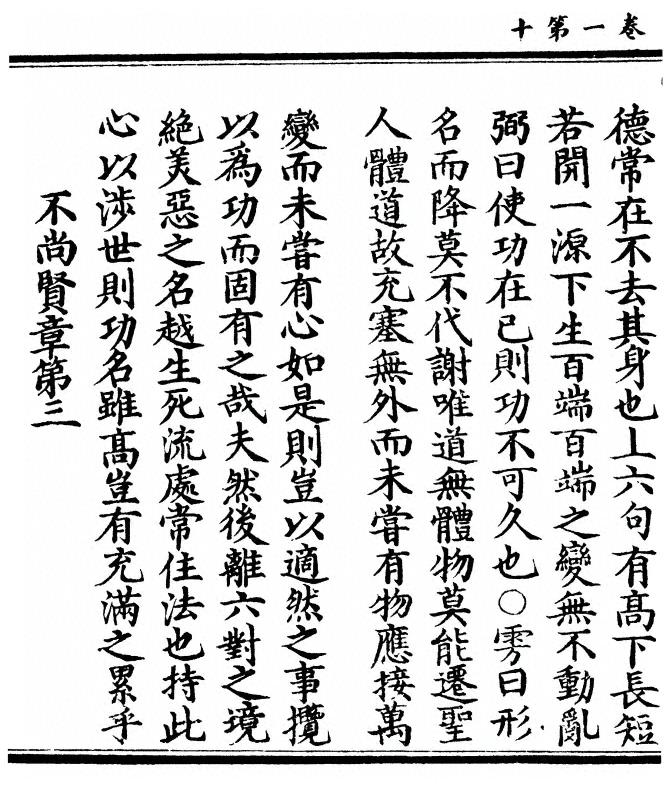 卷一第十
德常在不去其身也上六句有髙下長短
若開一源下生百端百端之變無不動亂
弼曰使功在已則功不可久也○雱曰形
名而降莫不代謝唯道無體物莫能遷聖
人體道故充塞無外而未甞有物應接萬
變而未甞有心如是則豈以適然之事攬
以爲功而固有之哉夫然後離六對之境
絶美惡之名越生死流處常住法也持此
心以涉世則功名雖髙豈有充滿之累乎
不尚賢章第三